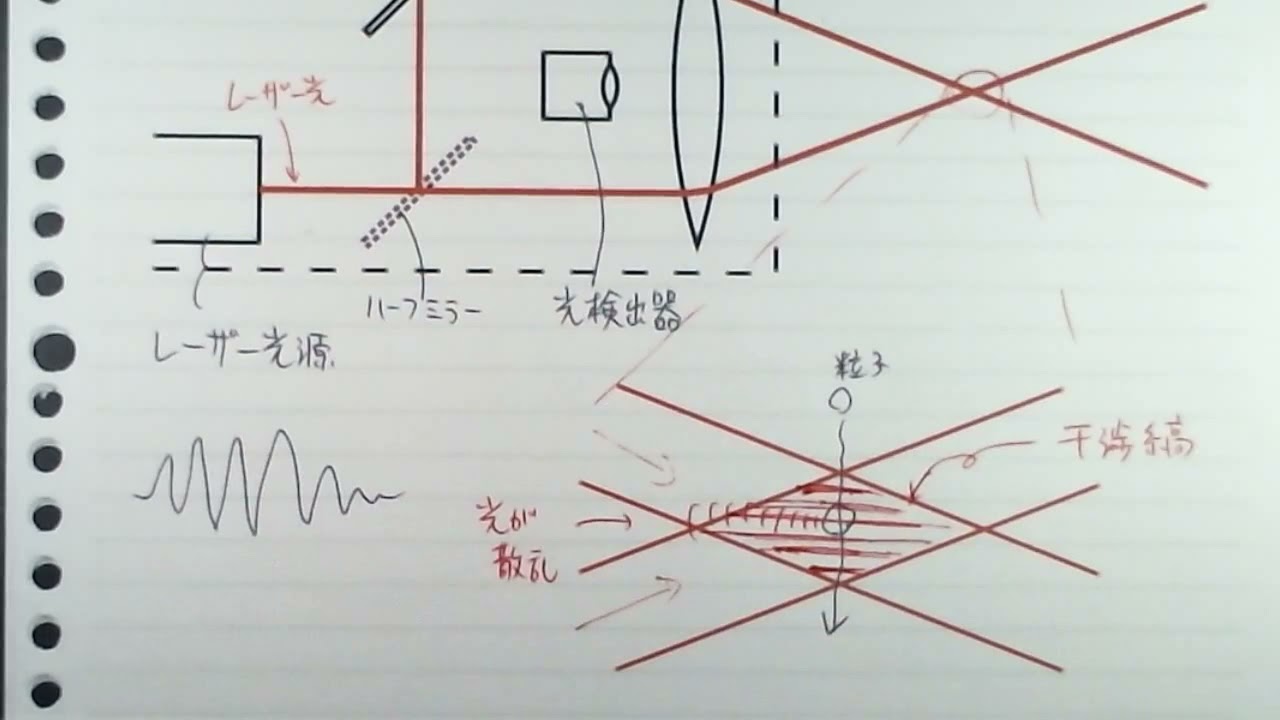 レーザー光
ハーフミラー
光検出器
レーザー光源
粒子
干渉縞
光が
散乱